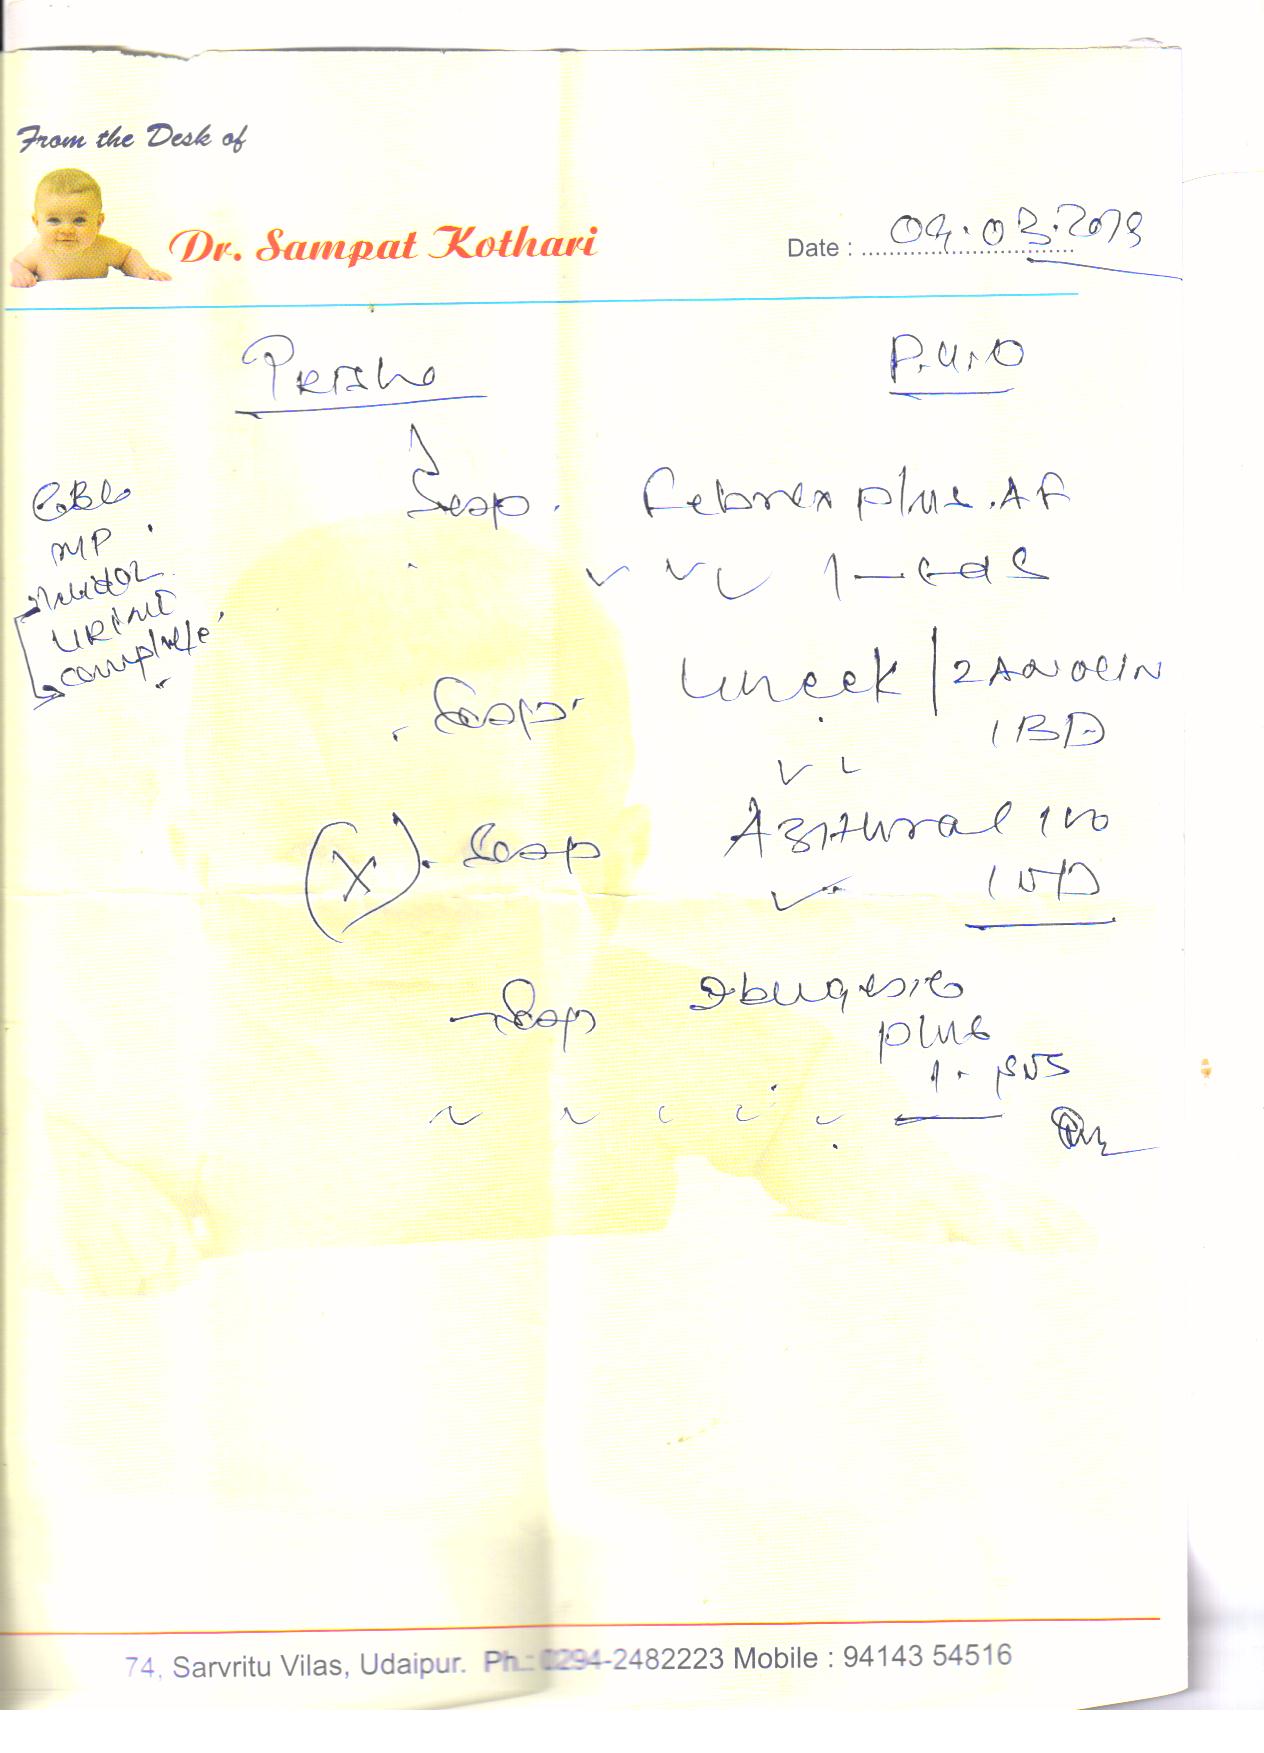 From the Desk of
Dr. Sampat Kothari
Date : 04.03.2019
P.U.O
CBC
MP
Widal
URINE
complete
Syp. Febrex plus. AF
1 - tds
Syp.
1 BD
Syp Azithral 100
1 OD
Syp Ibugesic
plus
1. sos
74, Sarvritu Vilas, Udaipur. Ph.: 0294-2482223 Mobile : 94143 54516